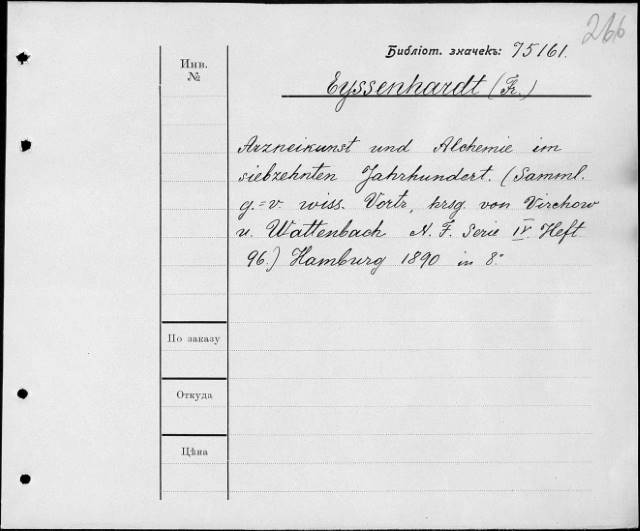 266
Библіот. значекъ: 75161.
Инв.
№
Eyssenhardt (Fr.)
Arzneikunst und Alchemie im
siebzehnten Jahrhundert. (Samml.
g.=v. wiss. Vortr., hrsg. von Virchow
u. Wattenbach N. F. Serie IV. Heft
96.) Hamburg 1890 in 8.°
По заказу
Откуда
Цѣна